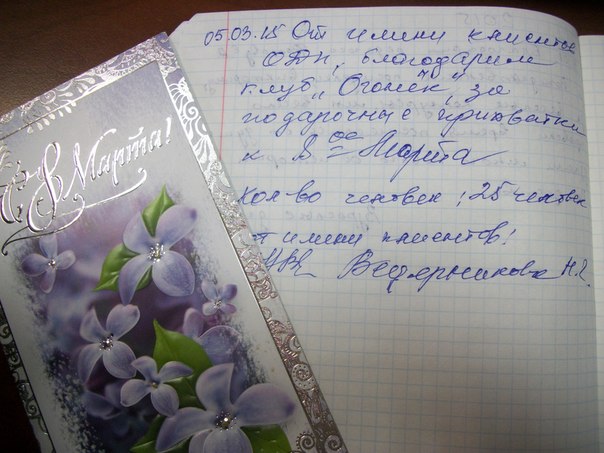 С 8 Марта!
05.03.15 От имени клиентов
ОДП, благодарим
клуб „Огонёк", за
подарочные прихватки
к 8 ое Марта
кол-во человек : 25 человек
от имени клиентов!
Ведерникова Н.